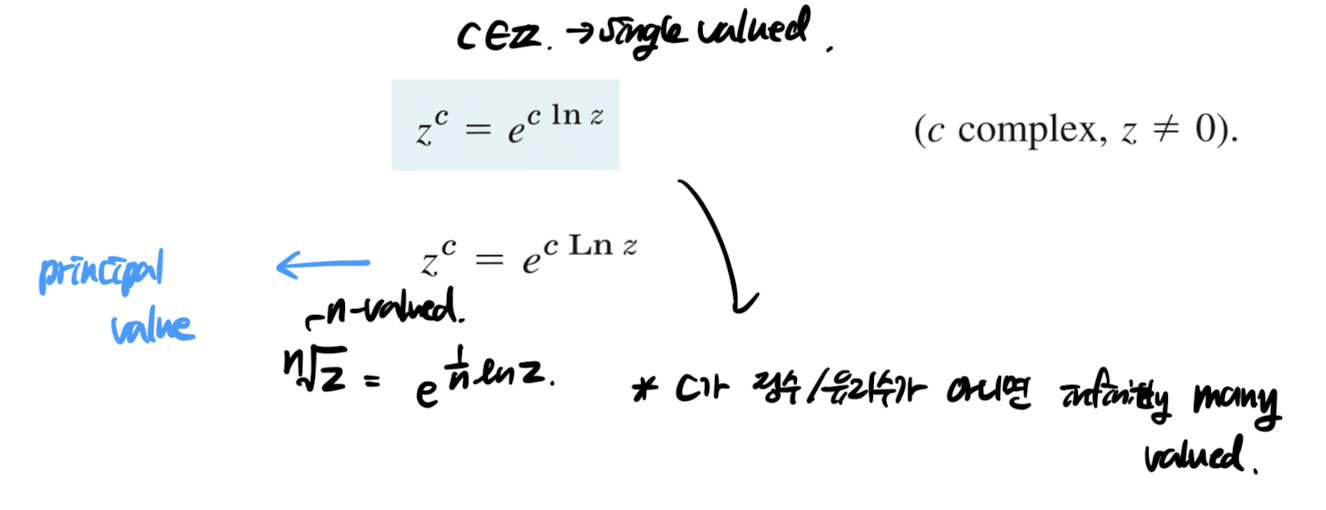 C∈ℤ. → single valued.
z^c = e^{c ln z} (c complex, z ≠ 0).
principal ← z^c = e^{c Ln z}
value
n-valued.
ⁿ√z = e^{1/n ln z}. * C가 정수/유리수가 아니면 infinitely many
valued.